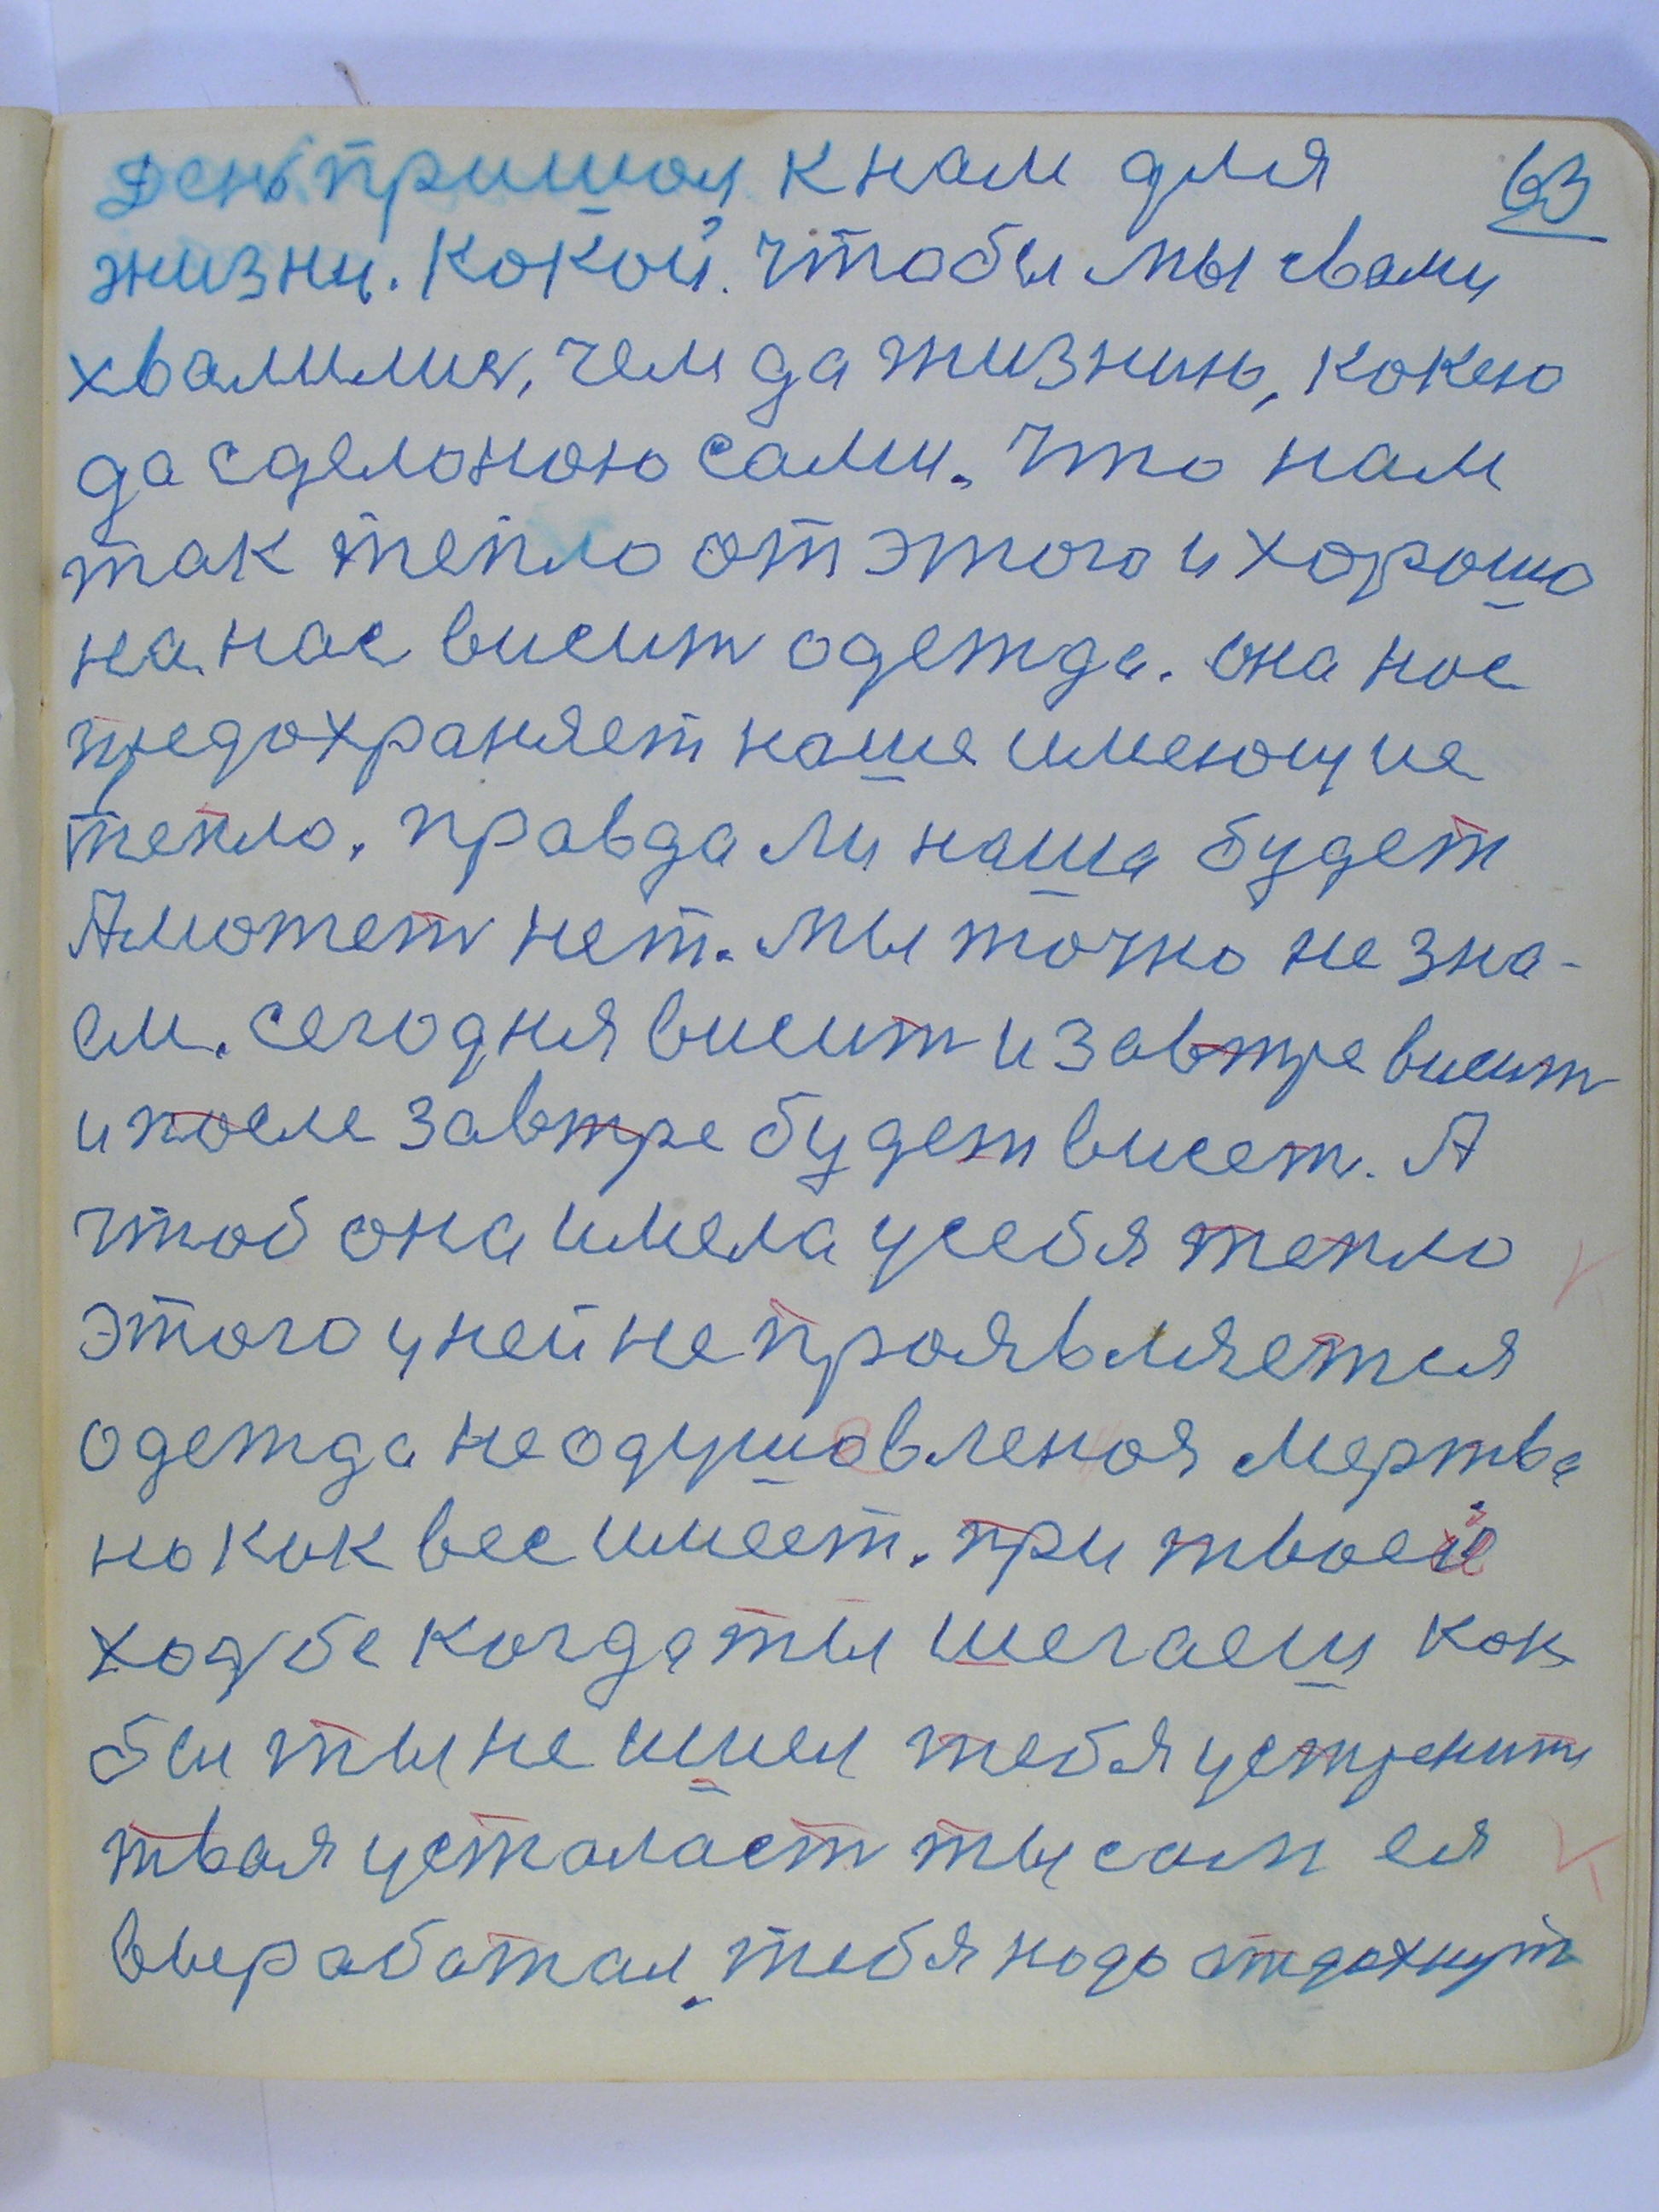 63
день пришол к нам для
жизни. Кокой. Чтобы мы свами
хвалился, чем да жизнию, кокею
да сделоною сами. Что нам
так тепло от этого и хорошо
на нас висит одежда. она нос
предохраняет наше имеющие
тепло. правда ли наша будет
А может нет. Мы точно не зна-
ем. сегодня висит и завтре висит
и после завтре будет висет. А
чтоб она имела у себя тепло
этого у ней не проявляется
одежда не одушовленоя мертва
но как вес имеет. при твоей
ходбе когда ты шегаеш как
бы ты не шшел тебя устренит
твоя усталаст ты сам ея
выработал, тебя надо отдохнут